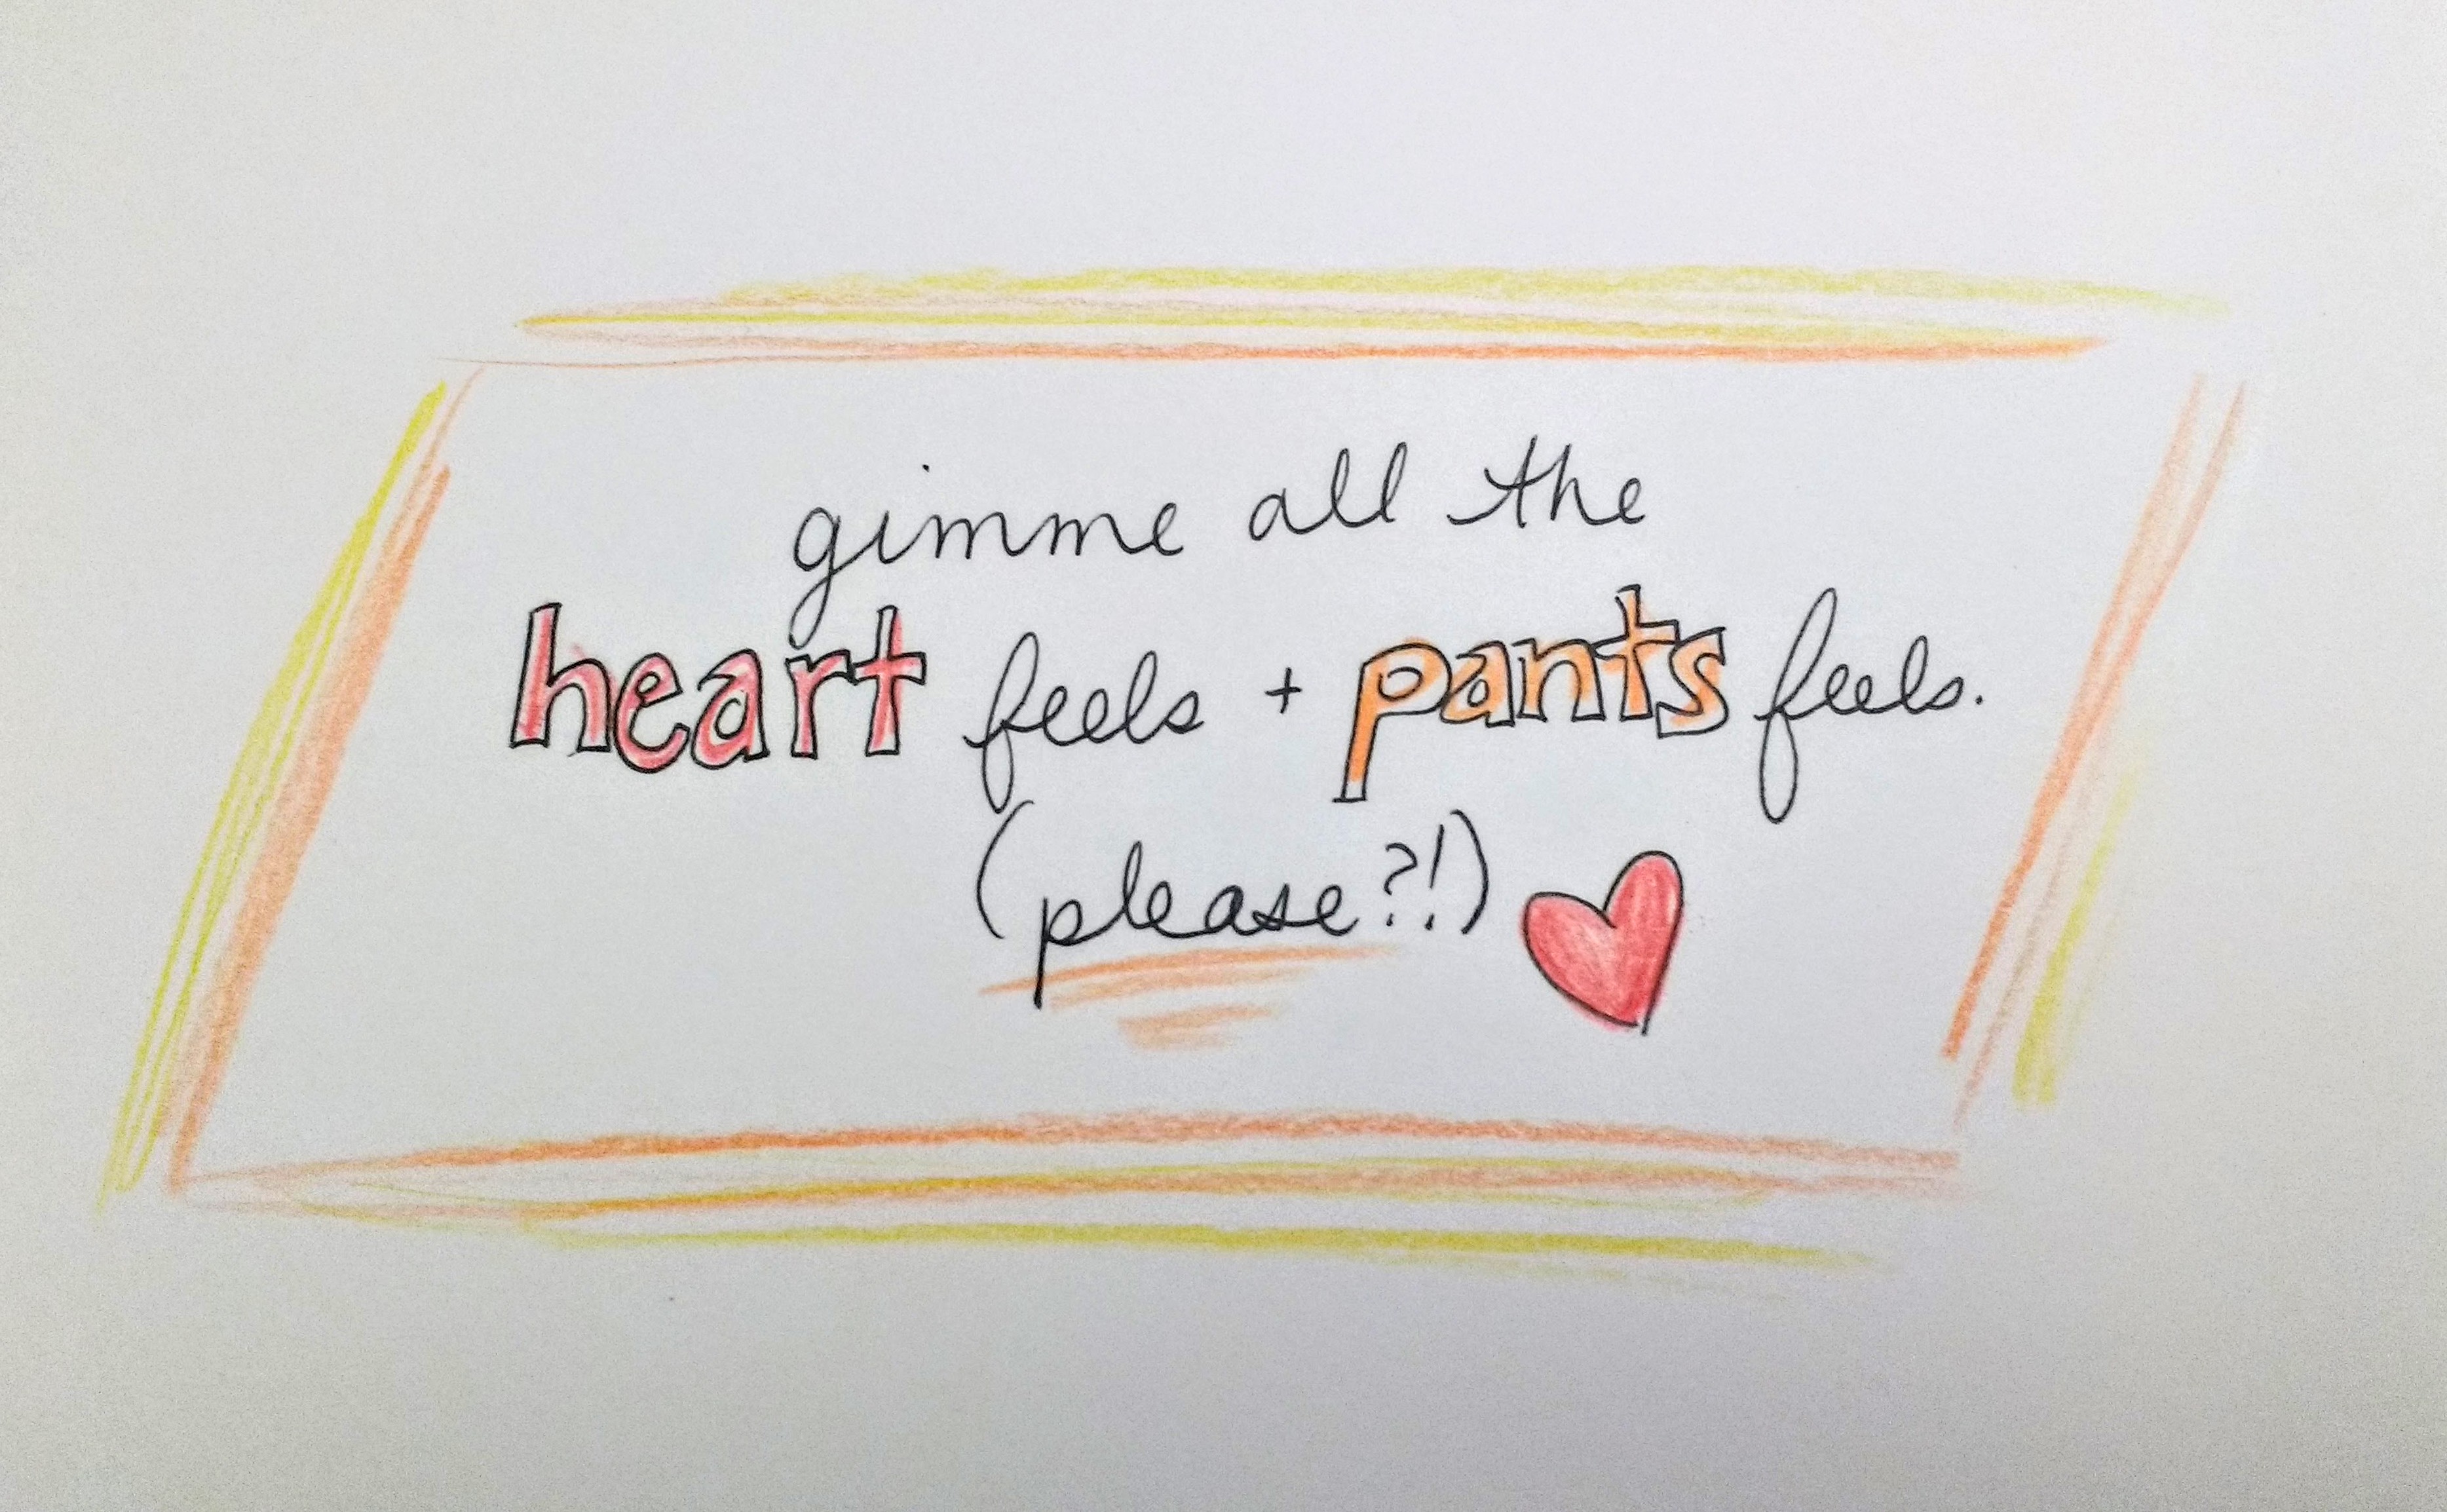 gimme all the
heart feels + pants feels.
(please?!)